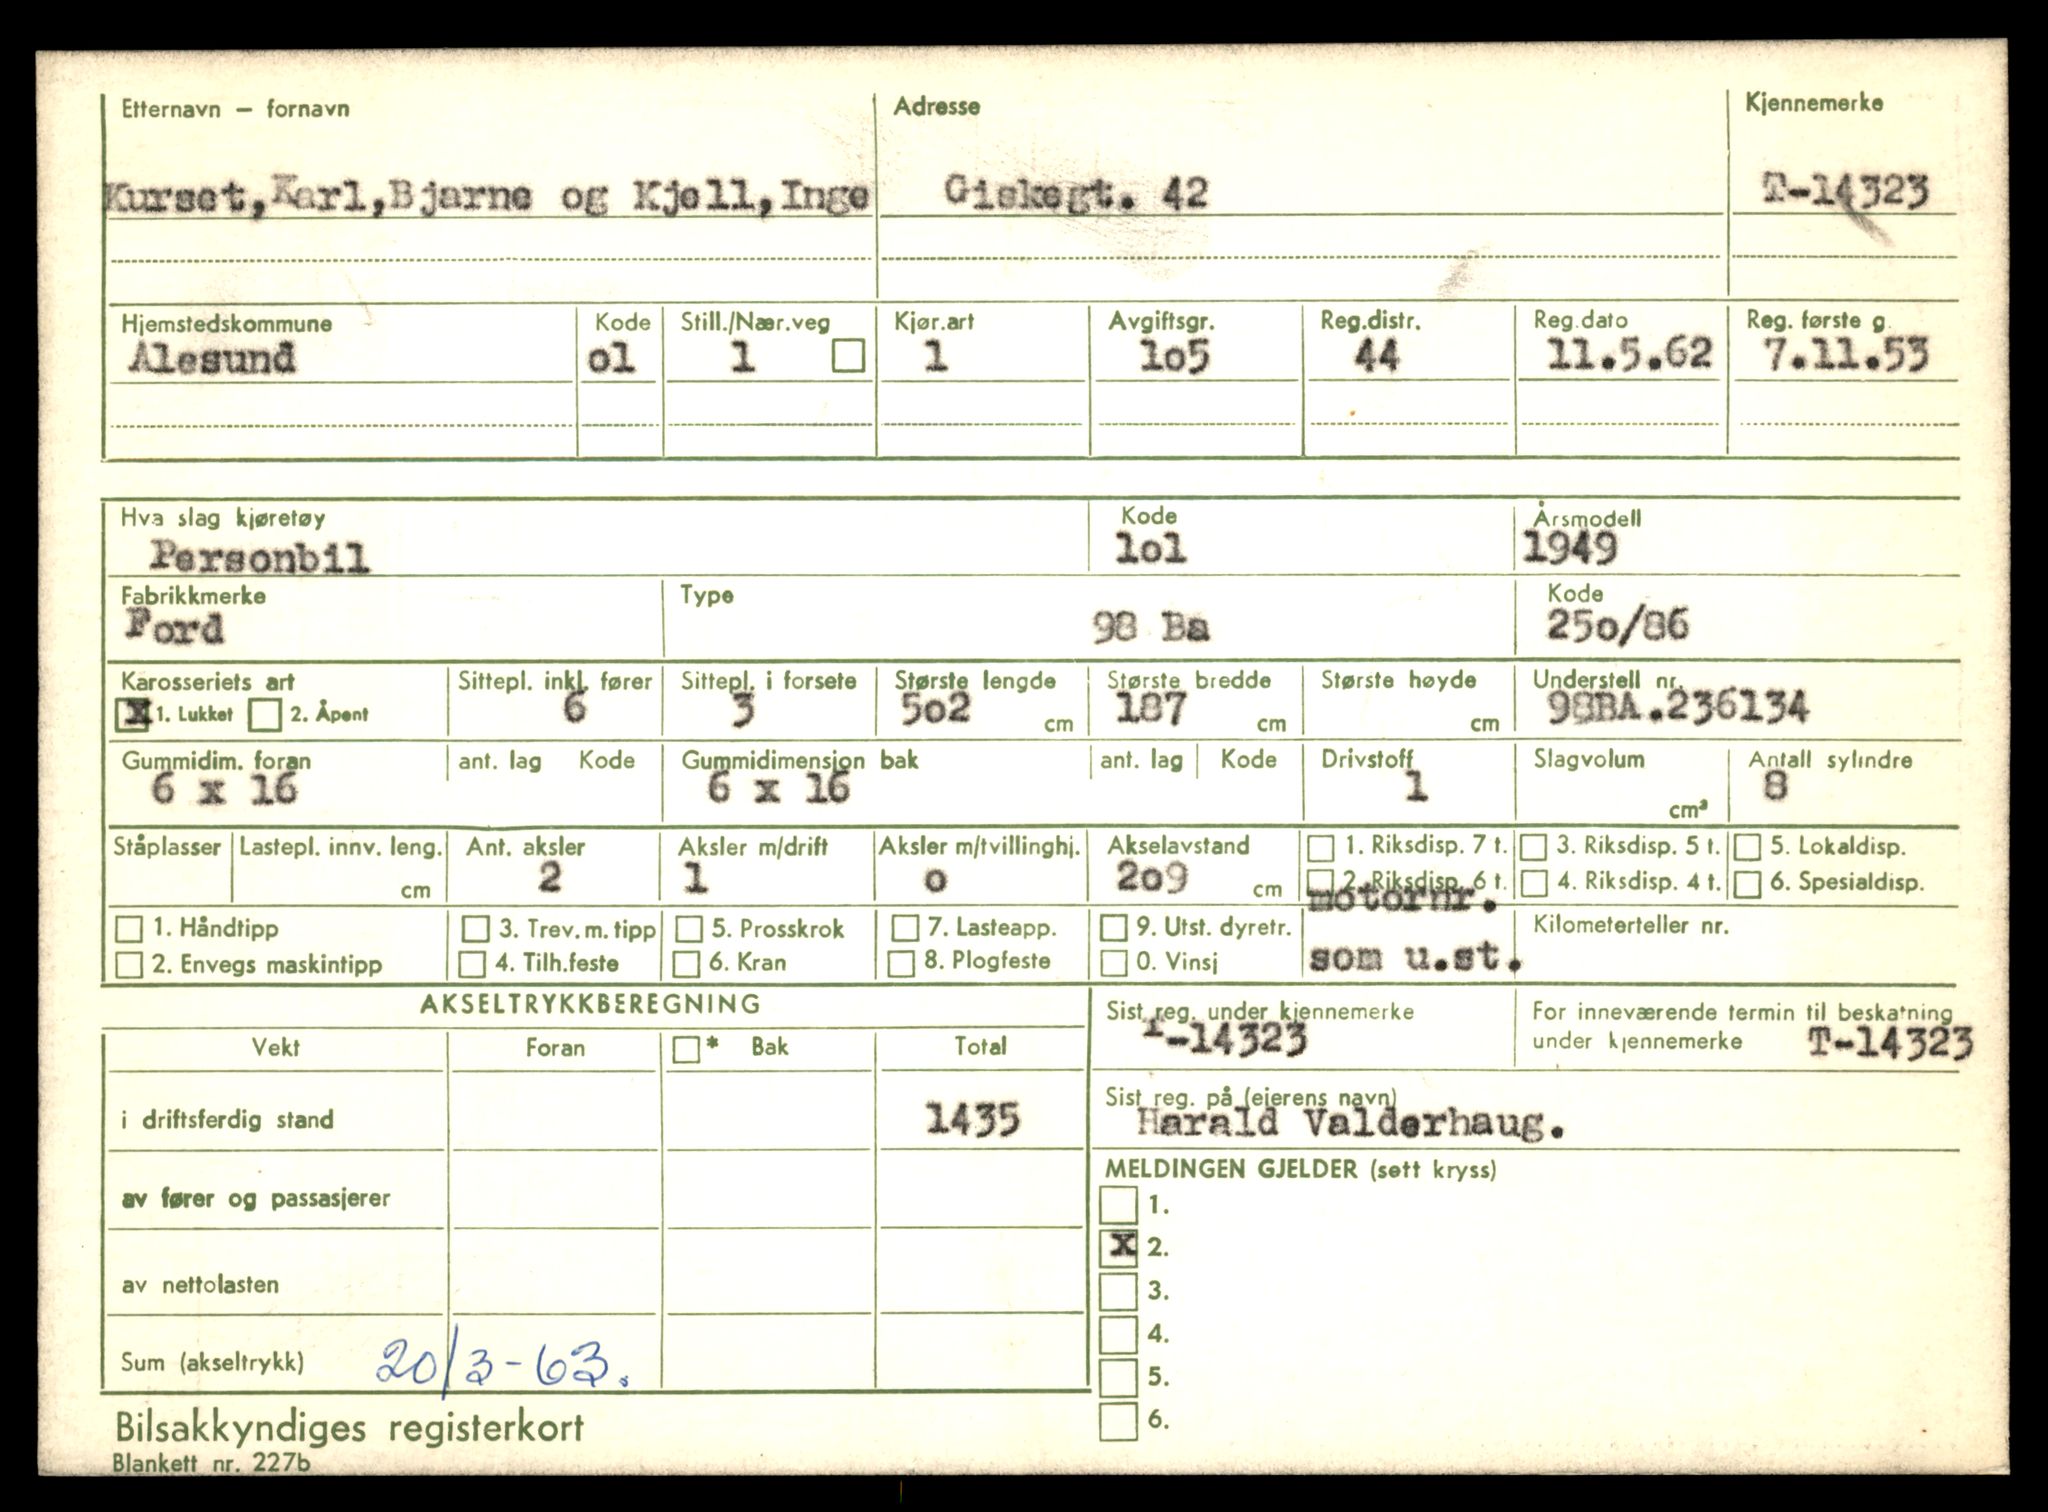 Etternavn – fornavn Adresse Kjennemerke
Kurset, Karl, Bjarne og Kjell, Inge Giskegt. 42 T-14323
Hjemstedskommune Kode Still./Nær.veg Kjør.art Avgiftsgr. Reg.distr. Reg.dato Reg. første g.
Ålesund o1 1 1 1o5 44 11.5.62 7.11.53
Hva slag kjøretøy Kode Årsmodell
Personbil 1o1 1949
Fabrikkmerke Type Kode
Ford 98 Ba 25o/86
Karosseriets art Sittepl. inkl. fører Sittepl. i forsete Største lengde Største bredde Største høyde Understell nr.
X 1. Lukket 2. Åpent 6 3 5o2 cm 187 cm cm 98BA.236134
Gummidim. foran ant. lag Kode Gummidimension bak ant. lag Kode Drivstoff Slagvolum Antall sylindre
6 x 16 6 x 16 1 cm³ 8
Ståplasser Lastepl. innv. leng. Ant. aksler Aksler m/drift Aksler m/tvillinghj. Akselavstand 1. Riksdisp. 7 t. 3. Riksdisp. 5 t. 5. Lokaldisp.
cm 2 1 o 2o9 cm 2. Riksdisp. 6 t. 4. Riksdisp. 4 t. 6. Spesialdisp.
motornr.
1. Håndtipp 3. Trev. m. tipp 5. Prosskrok 7. Lasteapp. 9. Utst. dyretr. Kilometerteller nr.
2. Envegs maskintipp 4. Tilh.feste 6. Kran 8. Plogfeste 0. Vinsj som u.st.
AKSELTRYKKBEREGNING Sist reg. under kjennemerke For inneværende termin til beskatning
T-14323 under kjennemerke T-14323
Vekt Foran * Bak Total
Sist reg. på (eierens navn)
i driftsferdig stand 1435 Harald Valderhaug.
MELDINGEN GJELDER (sett kryss)
av fører og passasjerer 1.
X 2.
av nettolasten 3.
4.
Sum (akseltrykk) 20/3-63. 5.
6.
Bilsakkyndiges registerkort
Blankett nr. 227b